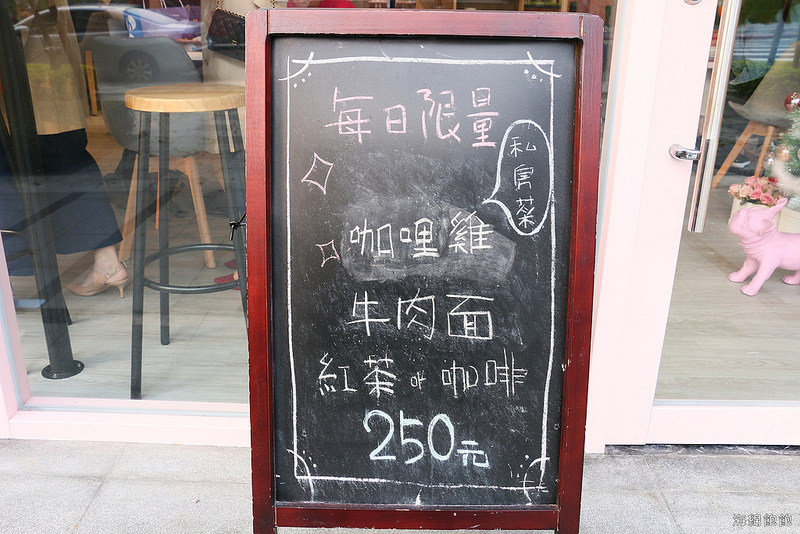 每日限量
私房菜
咖哩雞
牛肉面
紅茶 or 咖啡
250元
海綿飽飽